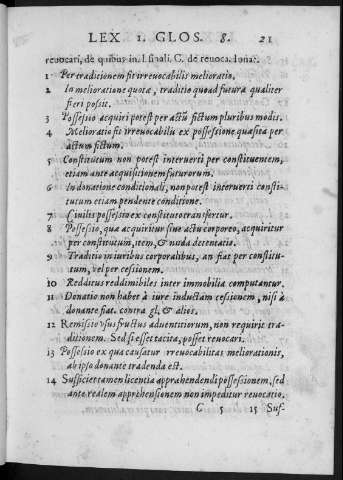 LEX 1. GLOS. 8. 21
reuocari, de quibus in. l. finali. C. de reuoca. donat.
1 Per traditionem fit irreuocabilis melioratio.
2 In melioratione quotæ, traditio quoad futura qualiter
fieri possit.
3 Possessio acquiri potest per actũ fictum pluribus modis.
4 Melioratio fit irreuocabilis ex possessione quæsita per
actum fictum.
5 Constitutum non potest interuerti per constituentem,
etiam ante acquisitionem futurorum.
6 In donatione conditionali, non potest interuerti consti-
tutum etiam pendente conditione.
7 Ciuilis possessio ex constituto transfertur.
8 Possessio, quæ acquiritur sine actu corporeo, acquiritur
per constitutum, item, & nuda detentatio.
9 Traditio in iuribus corporalibus, an fiat per constitu-
tum, vel per cessionem.
10 Redditus reddimibiles inter immobilia computantur.
11 Donatio non habet à iure inductam cessionem, nisi à
donante fiat. contra gl. & alios.
12 Remissio vsus fructus aduentitiorum, non requirit tra-
ditionem. Sed si esset tacita, posset reuocari.
13 Possessio ex qua causatur irreuocabilitas meliorationis,
ab ipso donante tradenda est.
14 Sufficiet tamen licentia apprahendendi possessionem, sed
ante realem apprehensionem non impeditur reuocatio.
C 5 15 Suf-